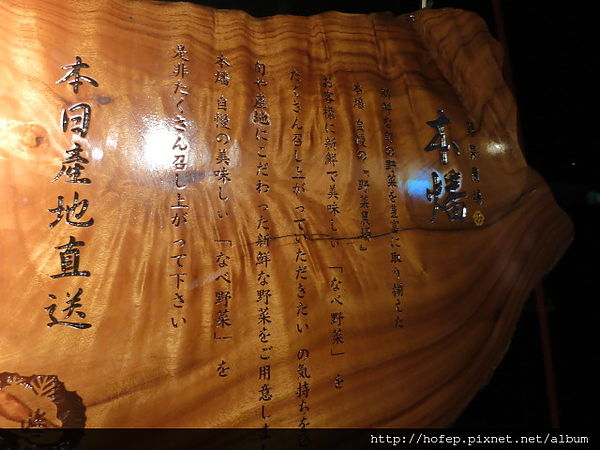 野菜農場
本燔
新鮮な旬の野菜を豊富に取り揃えた
本燔 自慢の『野菜農場』
お客様に新鮮で美味しい「なべ野菜」を
たくさん召し上がっていただきたい の気持ちを
旬や産地にこだわった新鮮な野菜をご用意しま
本燔 自慢の美味しい「なべ野菜」を
是非たくさん召し上がって下さい
本日産地直送
http://hofep.pixnet.net/album